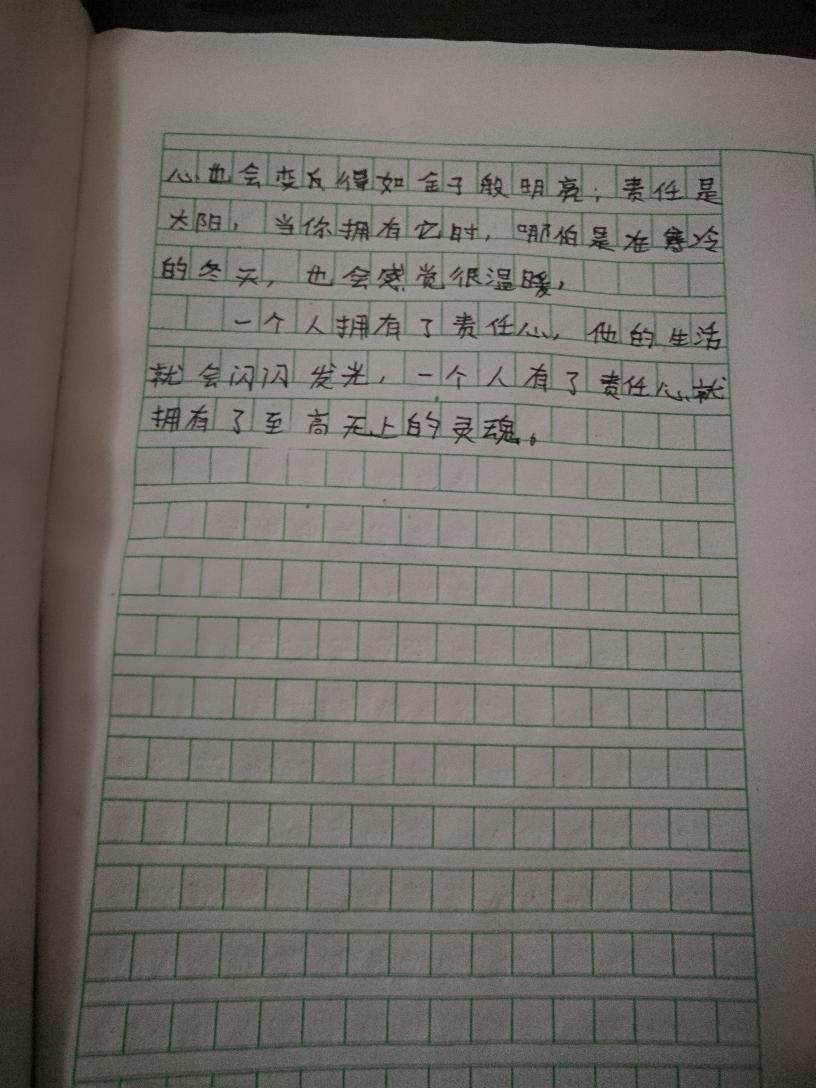 心也会变反得如金子般明亮；责任是
太阳，当你拥有它时，哪怕是在寒冷
的冬天，也会感觉很温暖，
一个人拥有了责任心，他的生活
就会闪闪发光，一个人有了责任心就
拥有了至高无上的灵魂。